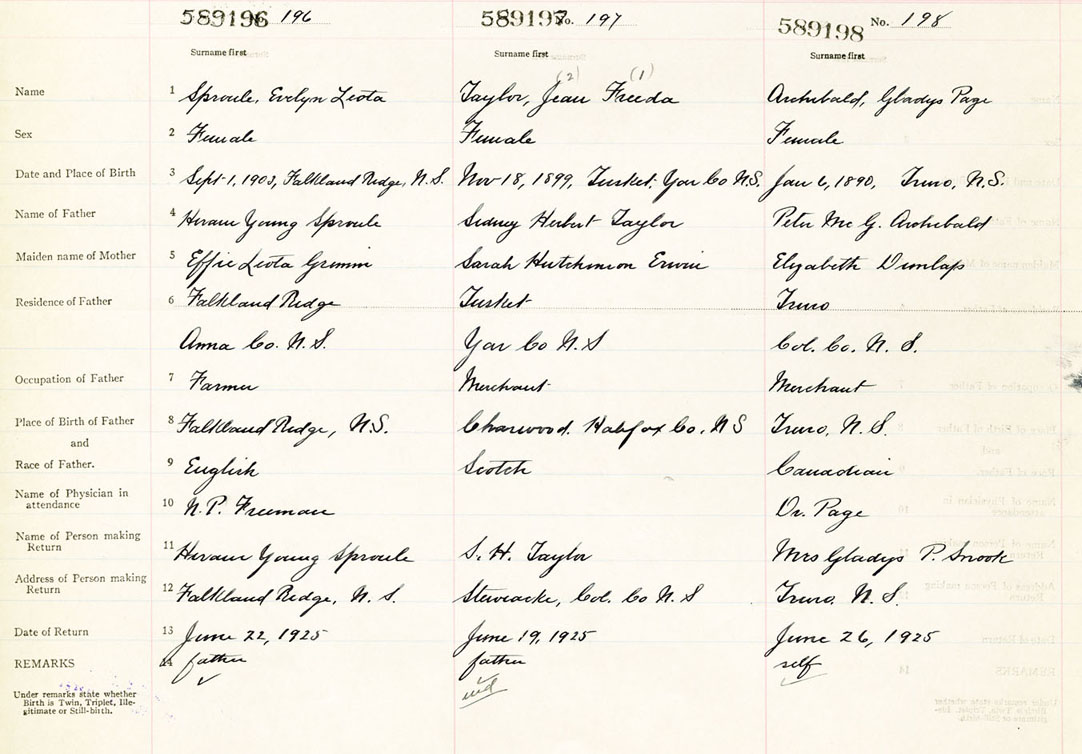 589196 196 589197 No. 197 589198 No. 198
Surname first Surname first Surname first
(2) (1)
Name 1 Sproule, Evelyn Leota Taylor, Jean Freeda Archibald, Gladys Page
Sex 2 Female Female Female
Date and Place of Birth 3 Sept 1, 1903, Falkland Ridge, N.S. Nov 18, 1899, Tusket, Yar Co N.S. Jan 6, 1890, Truro, N.S.
Name of Father 4 Hiram Young Sproule Sidney Herbert Taylor Peter Mc G. Archibald
Maiden name of Mother 5 Effie Leota Grimm Sarah Hutchinson Elizabeth Dunlap
Residence of Father 6 Falkland Ridge Tusket Truro
Anna Co. N.S. Yar Co N.S Col. Co. N. S.
Occupation of Father 7 Farmer Merchant Merchant
Place of Birth of Father 8 Falkland Ridge, N.S. Halifax Co. N S Truro, N. S.
and
Race of Father. 9 English Scotch Canadian
Name of Physician in
attendance 10 N.P. Freeman Dr. Page
Name of Person making
Return 11 Hiram Young Sproule S. H. Taylor Mrs Gladys P. Snook
Address of Person making
Return 12 Falkland Ridge, N. S. Stewiacke, Col. Co N. S Truro, N. S.
Date of Return 13 June 22, 1925 June 19, 1925 June 26, 1925
REMARKS 14 father father self
Under remarks state whether
Birth is Twin, Triplet, Ille-
gitimate or Still-birth.